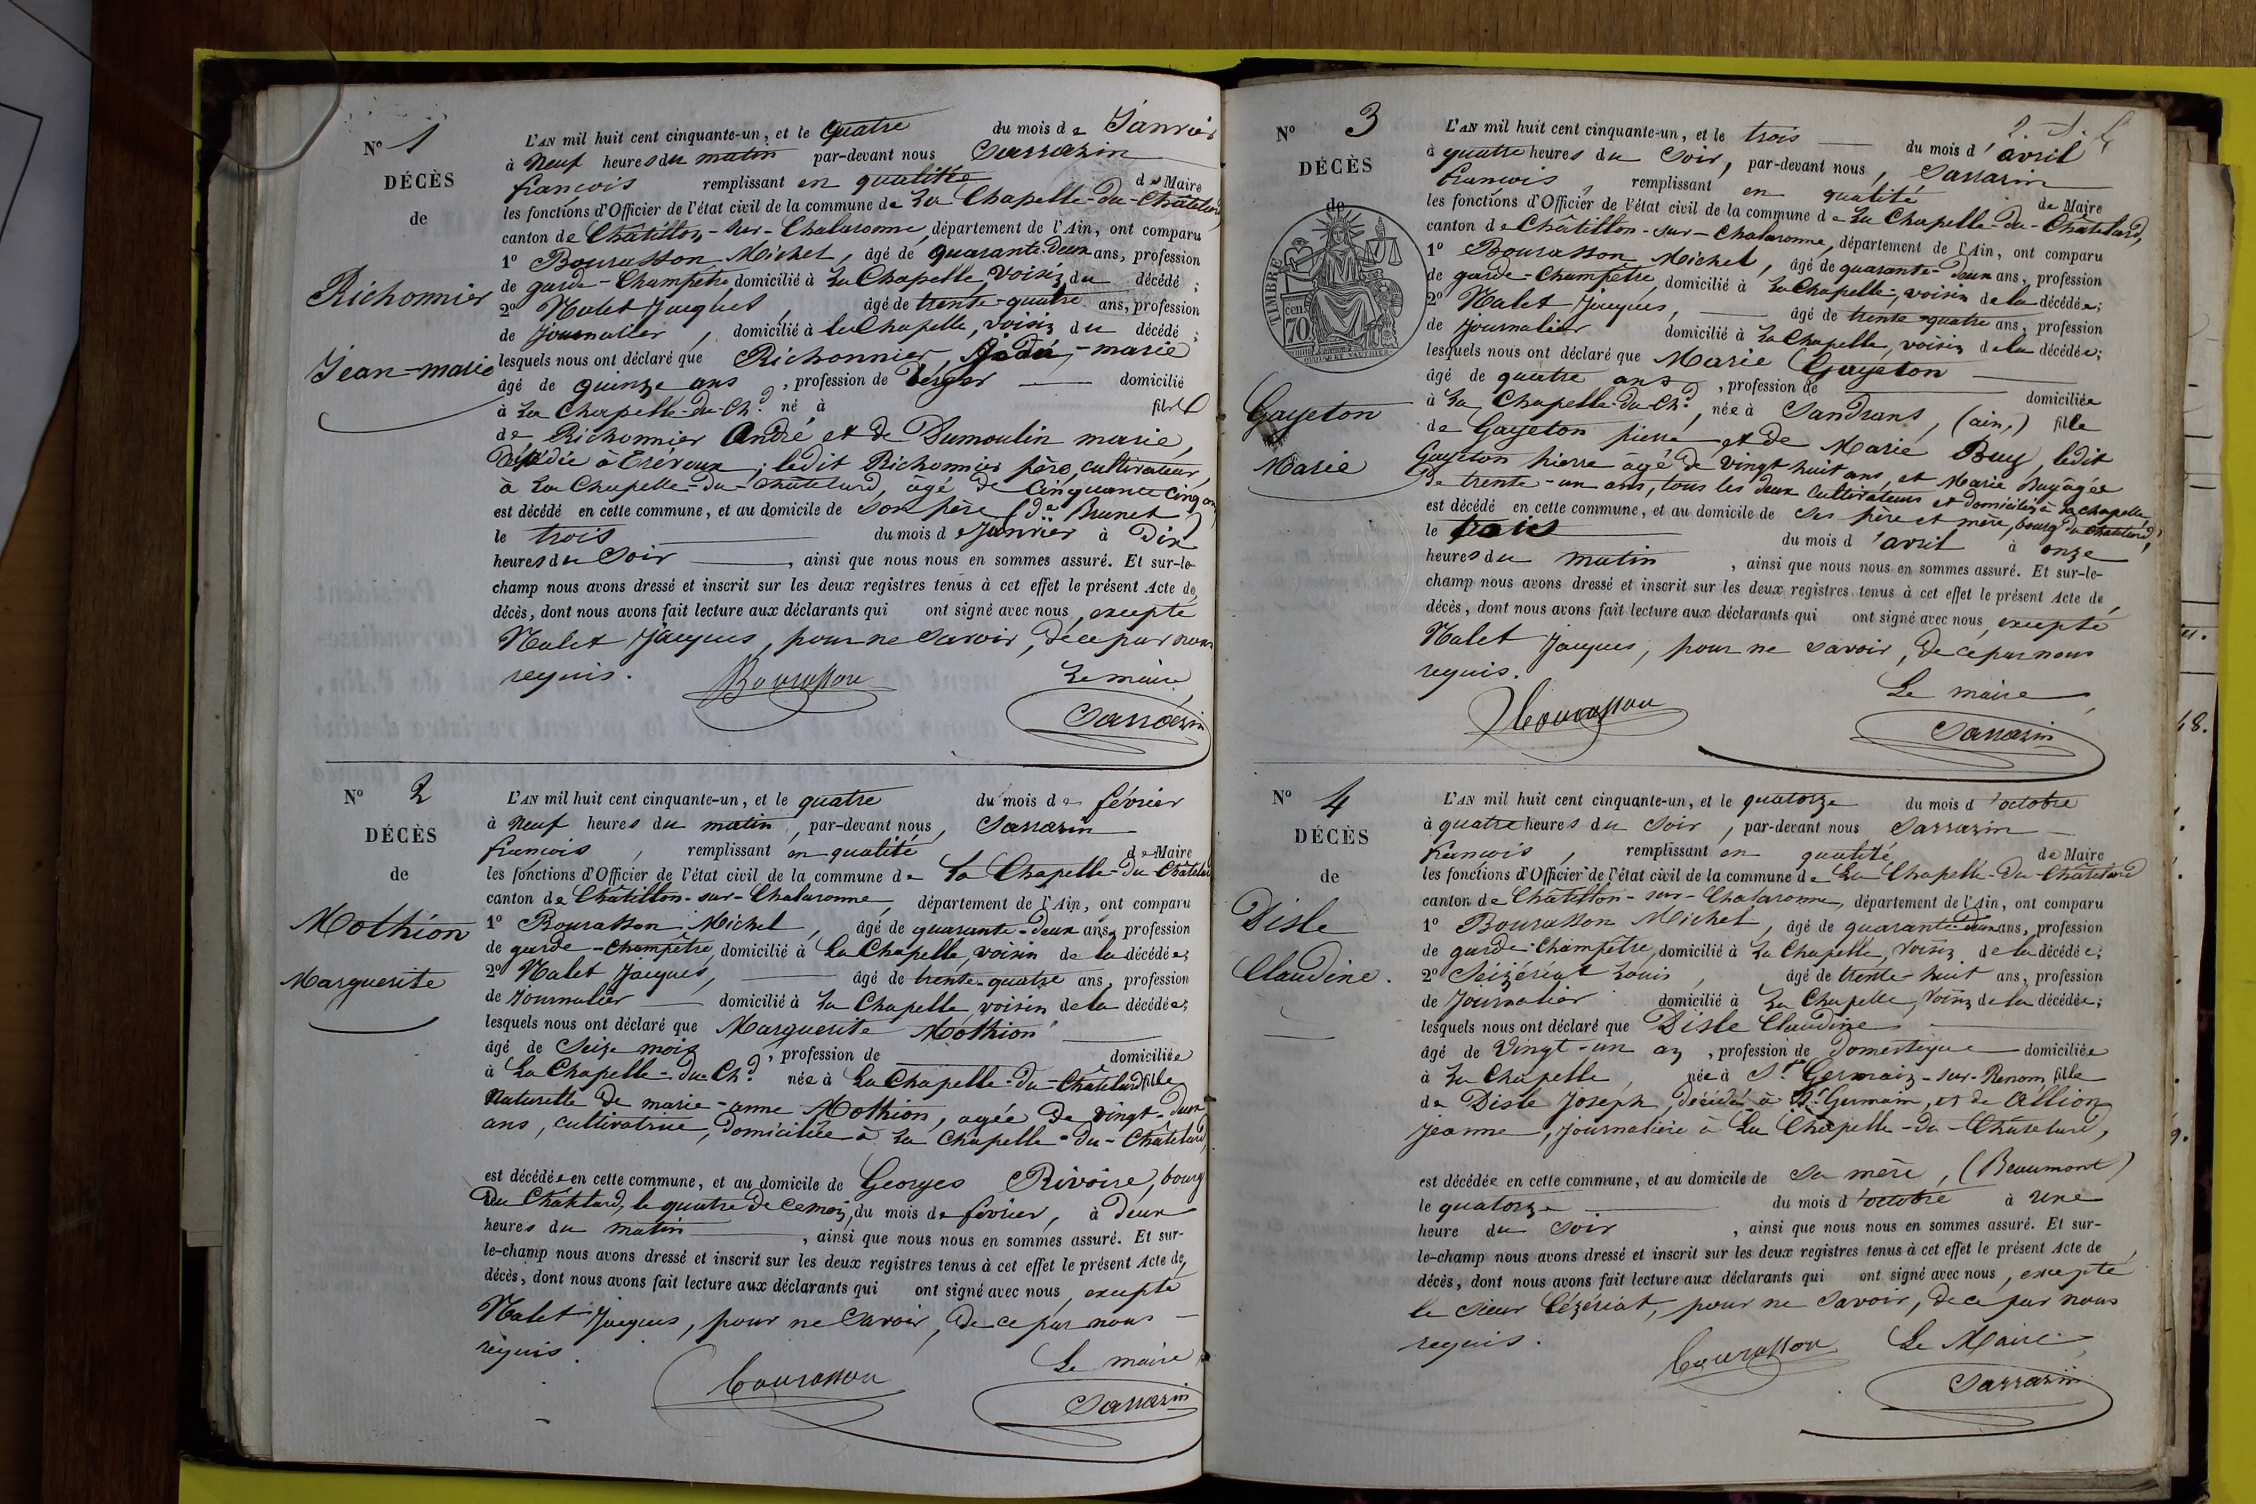 N° 1
DÉCÈS
de
Richonnier
Jean-marie
L'AN mil huit cent cinquante-un, et le quatre du mois de Janvier
à Neuf heures du matin par-devant nous Sarrazin
françois remplissant en qualité de Maire
les fonctions d'Officier de l'état civil de la commune de La Chapelle-du-Châtelard
canton de Châtillon-sur-Chalaronne, département de l'Ain, ont comparu
1° Bourasson Michel, âgé de quarante-deux ans, profession
de garde-Champêtre domicilié à La Chapelle, voisin du décédé ;
2° Nalet Jacques, âgé de trente-quatre ans, profession
de journalier, domicilié à la Chapelle, voisin du décédé ;
lesquels nous ont déclaré que Richonnier, -marie
âgé de quinze ans, profession de berger domicilié
à La Chapelle-du-Chd. né à fils
de Richonnier André et de Dumoulin marie,
décédée à Trévoux ; ledit Richonnier père, cultivateur,
à La Chapelle-du-Châtelard, âgé de Cinquante cinq ans
est décédé en cette commune, et au domicile de son père (de Brunet)
le trois du mois de Janvier à Dix
heures du Soir, ainsi que nous nous en sommes assuré. Et sur-le-
champ nous avons dressé et inscrit sur les deux registres tenus à cet effet le présent Acte de
décès, dont nous avons fait lecture aux déclarants qui ont signé avec nous, excepté
Nalet Jacques, pour ne savoir, de ce par nous
requis.
Bourasson
Le maire
Sarrazin
N° 2
DÉCÈS
de
Mothion
Marguerite
L'AN mil huit cent cinquante-un, et le quatre du mois de février
à Neuf heures du matin, par-devant nous, Sarrazin
françois, remplissant en qualité de Maire
les fonctions d'Officier de l'état civil de la commune de La Chapelle-du-Châtelard
canton de Châtillon-sur-Chalaronne, département de l'Ain, ont comparu
1° Bourasson Michel, âgé de quarante-deux ans, profession
de garde-Champêtre, domicilié à La Chapelle, voisin de la décédée;
2° Nalet Jacques, âgé de trente-quatre ans, profession
de Journalier domicilié à La Chapelle, voisin de la décédée;
lesquels nous ont déclaré que Marguerite Mothion
âgé de Seize mois, profession de domiciliée
à La Chapelle-du-Chd. née à La Chapelle-du-Châtelard fille
Naturelle de marie-anne Mothion, agée de vingt-deux
ans, cultivatrice, domiciliée à La Chapelle-du-Châtelard,
est décédée en cette commune, et au domicile de Georges Rivoire, bourg
du Châtelard, le quatre de ce mois, du mois de février, à deux
heures du matin, ainsi que nous nous en sommes assuré. Et sur-
le-champ nous avons dressé et inscrit sur les deux registres tenus à cet effet le présent Acte de
décès, dont nous avons fait lecture aux déclarants qui ont signé avec nous, excepté
Nalet Jacques, pour ne savoir, de ce par nous
requis.
Bourasson
Le maire
Sarrazin
N° 3
DÉCÈS
de
TIMBRE
70 cen
Gayeton
Marie
L'AN mil huit cent cinquante-un, et le trois du mois d'avril
à quatre heures du Soir, par-devant nous, Sarrazin
francois, remplissant en qualité de Maire
les fonctions d'Officier de l'état civil de la commune de La Chapelle-du-Châtelard,
canton de Châtillon-sur-Chalaronne, département de l'Ain, ont comparu
1° Bourasson Michel, âgé de quarante-deux ans, profession
de garde-Champêtre, domicilié à La Chapelle, voisin de la décédée;
2° Nalet Jacques, âgé de trente-quatre ans, profession
de Journalier domicilié à La Chapelle, voisin de la décédée;
lesquels nous ont déclaré que Marie Gayeton
âgé de quatre ans, profession de domiciliée
à La Chapelle-du-Chd., née à Sandrans, (ain,) fille
de Gayeton pierre et de Marie Buy, ledit
Gayeton pierre âgé de vingt huit ans, et Marie Buy âgée
de trente-un ans, tous les deux cultivateurs et domiciliés à La Chapelle,
est décédé en cette commune, et au domicile de ses père et mère, bourg du Châtelard,
le trois du mois d'avril à onze
heures du matin, ainsi que nous nous en sommes assuré. Et sur-le-
champ nous avons dressé et inscrit sur les deux registres tenus à cet effet le présent Acte de
décès, dont nous avons fait lecture aux déclarants qui ont signé avec nous, excepté
Nalet Jacques, pour ne savoir, de ce par nous
requis.
Bourasson
Le maire
Sarrazin
N° 4
DÉCÈS
de
Disle
Claudine.
L'AN mil huit cent cinquante-un, et le quatorze du mois d'octobre
à quatre heures du Soir, par-devant nous Sarrazin
francois, remplissant en qualité de Maire
les fonctions d'Officier de l'état civil de la commune de La Chapelle-du-Châtelard
canton de Châtillon-sur-Chalaronne, département de l'Ain, ont comparu
1° Bourasson Michel, âgé de quarante-deux ans, profession
de garde-Champêtre, domicilié à La Chapelle, voisin de la décédée;
2° Sézériat Louis, âgé de trente-huit ans, profession
de Journalier domicilié à La Chapelle, voisin de la décédée;
lesquels nous ont déclaré que Disle Claudine
âgé de vingt-un an, profession de domestique domiciliée
à La Chapelle, née à St. Germain-sur-Renom, fille
de Disle Joseph, décédé à St. Germain, et de Allion
jeanne, Journalière à La Chapelle-du-Châtelard,
est décédée en cette commune, et au domicile de Sa mère, (Beaumont)
le quatorze du mois d'octobre à une
heure du Soir, ainsi que nous nous en sommes assuré. Et sur-
le-champ nous avons dressé et inscrit sur les deux registres tenus à cet effet le présent Acte de
décès, dont nous avons fait lecture aux déclarants qui ont signé avec nous, excepté
le Sieur Cézériat, pour ne savoir, de ce par nous
requis.
Bourasson
Le Maire
Sarrazin